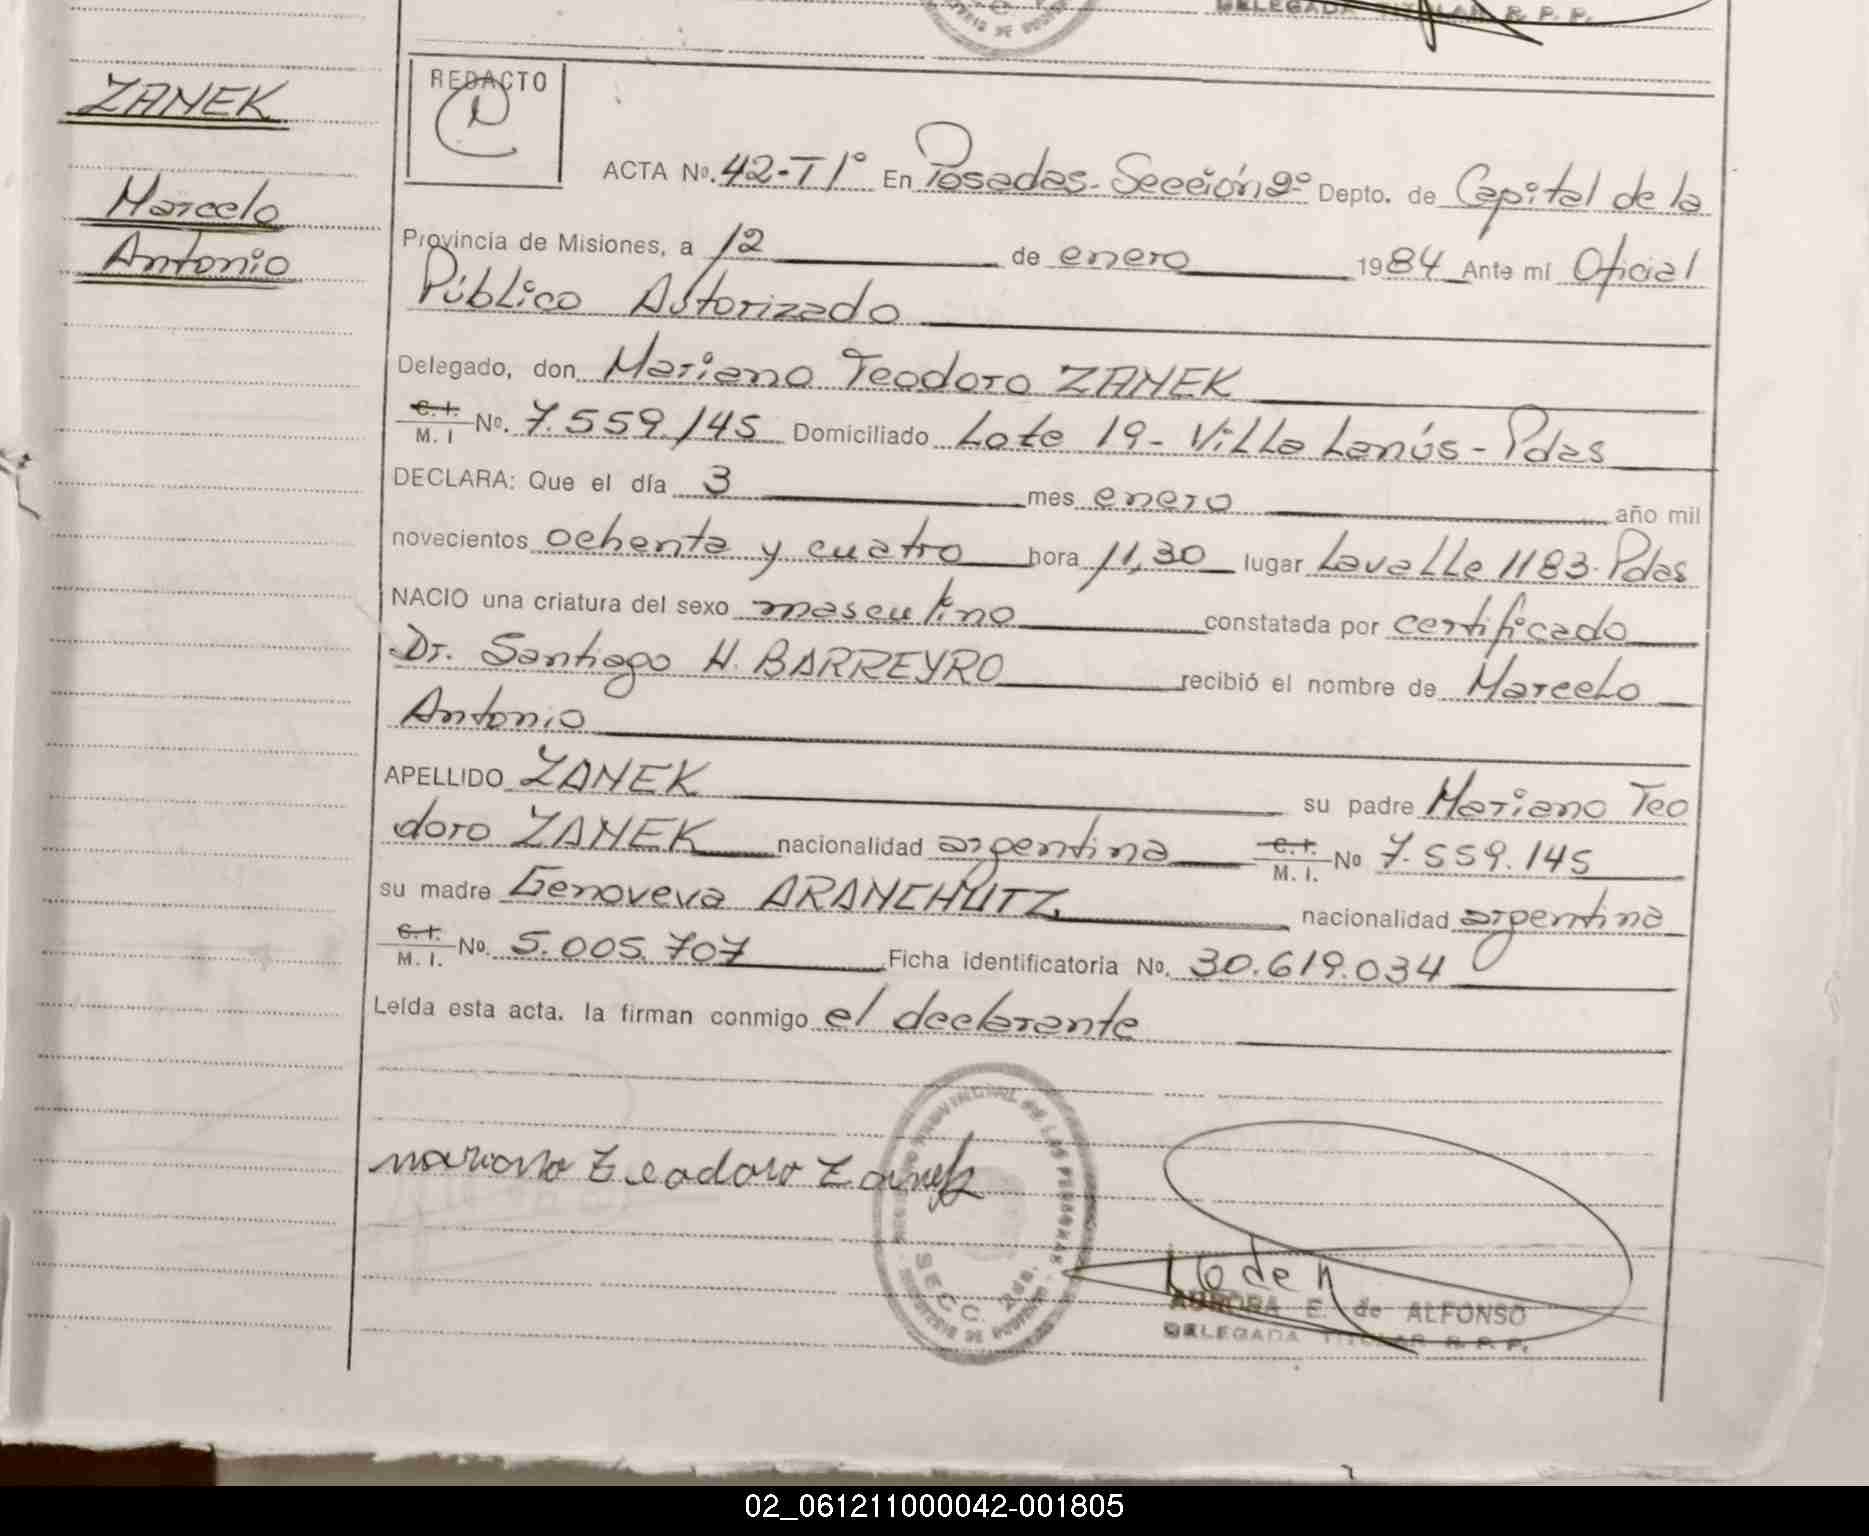 DELEGADA TITULAR R. P. P.
ZANEK
Marcelo
Antonio
REDACTO
ACTA Nº. 42-T1º En Posadas-Sección 2º Depto. de Capital de la
Provincia de Misiones, a 12 de enero 1984 Ante mí Oficial
Público Autorizado
Delegado, don Mariano Teodoro ZANEK
C.I.
M. I Nº. 7.559.145 Domiciliado Lote 19- Villa Lanús-Pdas
DECLARA: Que el día 3 mes enero año mil
novecientos ochenta y cuatro hora 11,30 lugar Lavalle 1183-Pdas
NACIO una criatura del sexo masculino constatada por certificado
Dr. Santiago H. BARREYRO recibió el nombre de Marcelo
Antonio
APELLIDO ZANEK su padre Mariano Teo
doro ZANEK nacionalidad argentina C.I. M. I. Nº 7.559.145
su madre Genoveva ARANCHUTZ nacionalidad argentina
C.I.
M. I. Nº. 5.005.707 Ficha identificatoria Nº. 30.619.034
Leída esta acta. la firman conmigo el declarante
mariano teodoro Zanek
PROVINCIAL DE LAS PERSONAS
SECC. 2da.
AURORA E. de ALFONSO
DELEGADA TITULAR R. P. P.
02_061211000042-001805